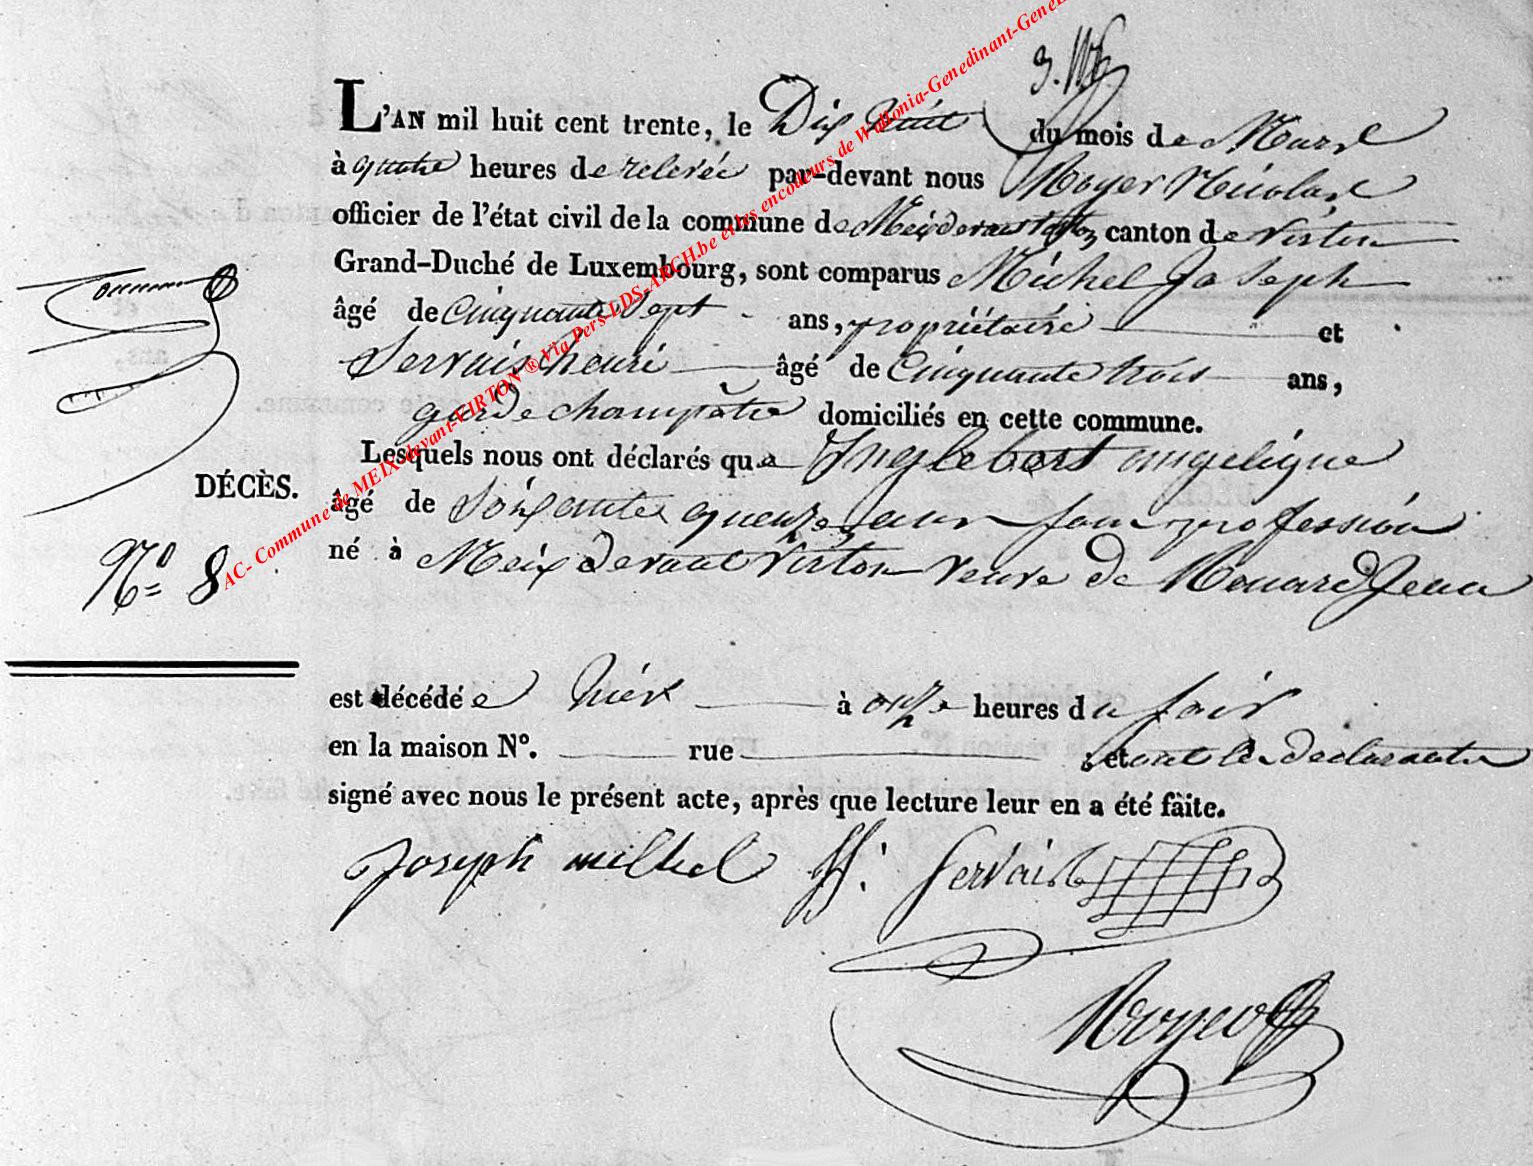 L'AN mil huit cent trente, le Dix huit du mois de Mars
à quatre heures de relevée par-devant nous Royer Nicolas
officier de l'état civil de la commune de Meix devant Virton canton de Virton
Grand-Duché de Luxembourg, sont comparus Michel Joseph
âgé de Cinquante Sept ans, propriétaire et
Servais henri âgé de Cinquante trois ans,
garde champêtre domiciliés en cette commune.
Lesquels nous ont déclarés que Inglebert angelique
DÉCÈS.
âgé de Soixante quenze ans san profession
né à Meix devant Virton veuve de Rouard Jean
N° 8
est décédée hier à onze heures du soir
en la maison N°. rue ; et ont les declarants
signé avec nous le présent acte, après que lecture leur en a été fàite.
Joseph michel H. Servais
Royer
AC- Commune de MEIX-devant-VIRTON ® Via Pers-LDS-ARCH.be et les encodeurs de Wallonia-Genedinant-Gene